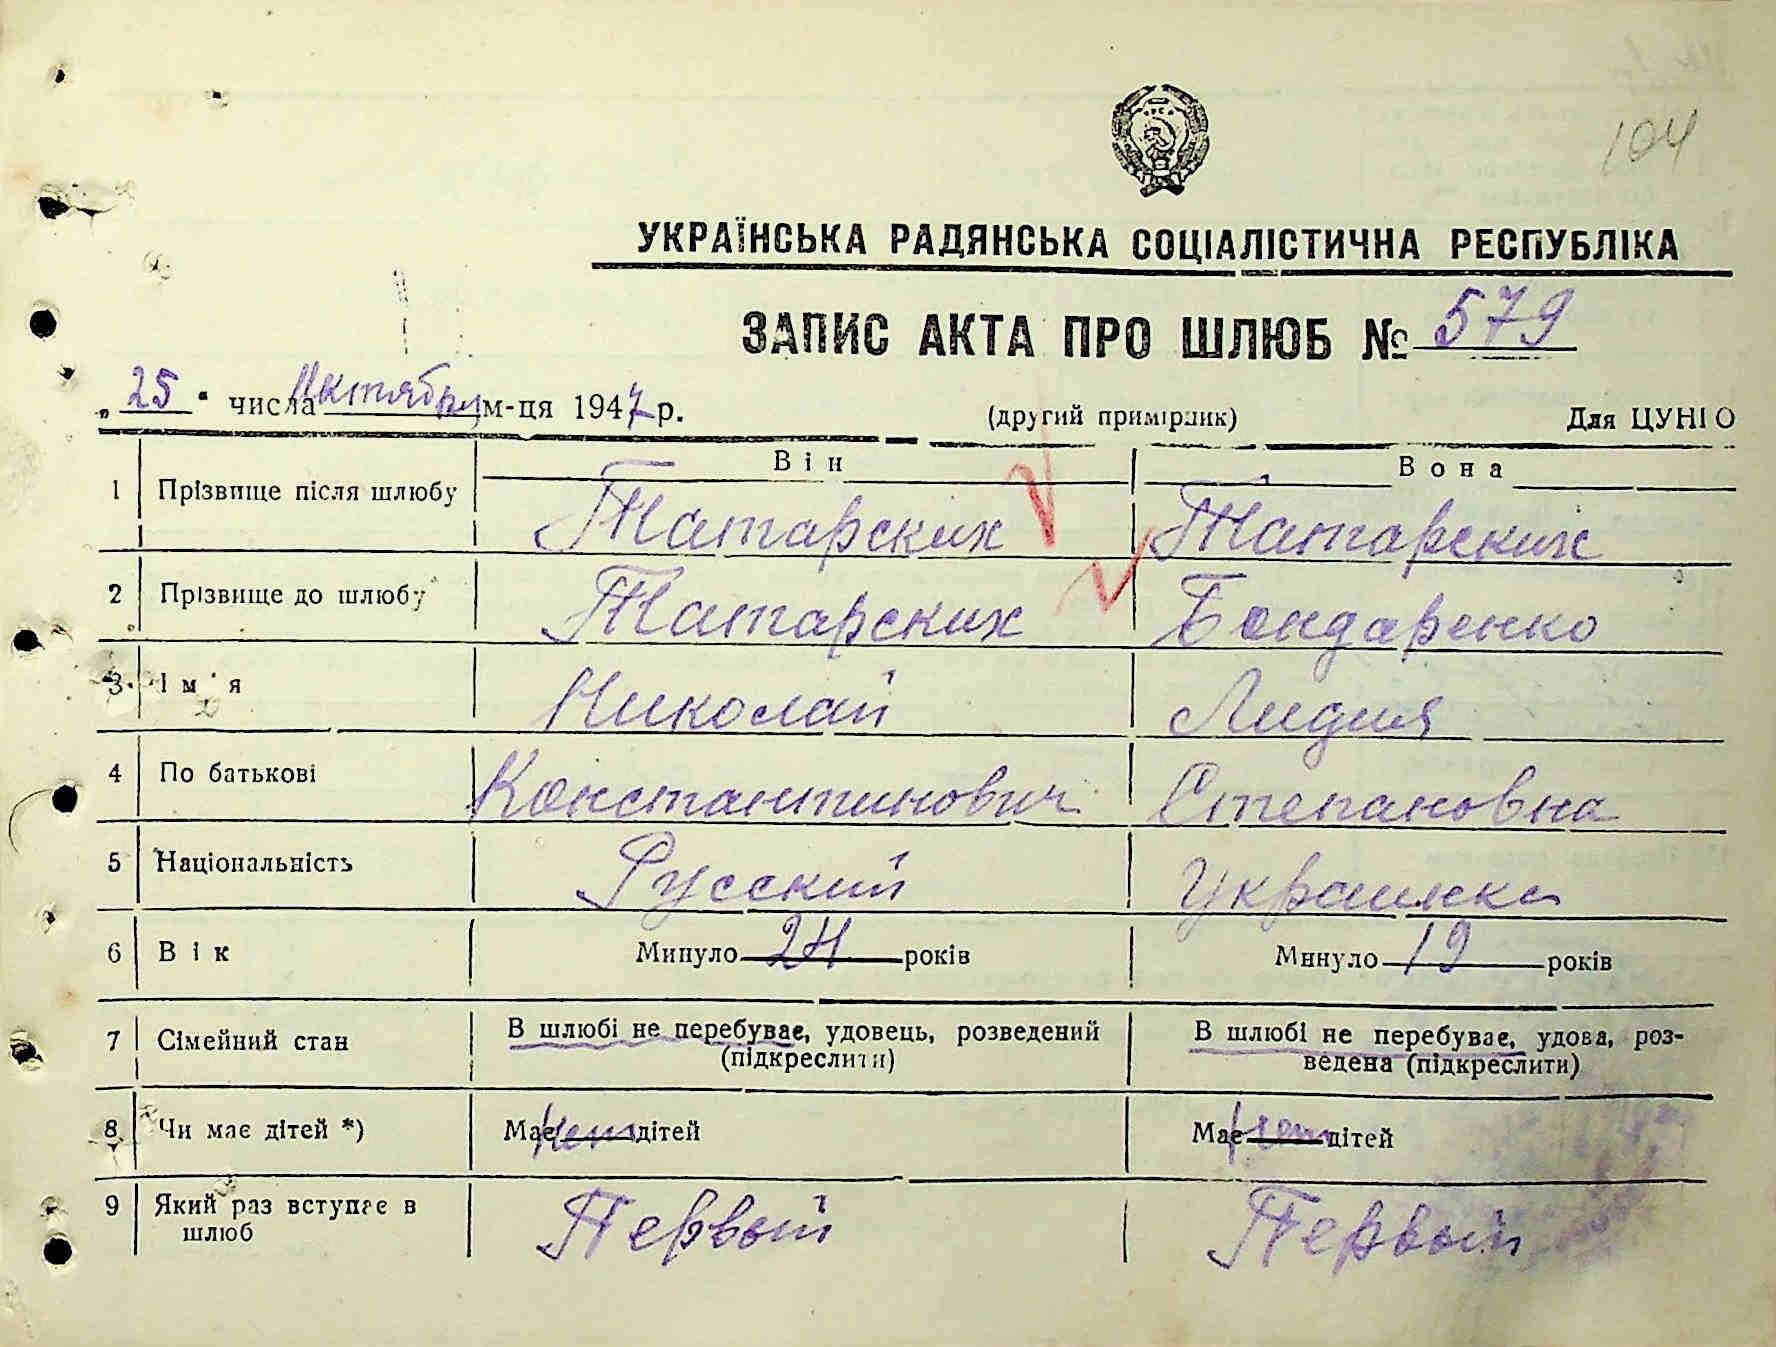 104
УКРАЇНСЬКА РАДЯНСЬКА СОЦІАЛІСТИЧНА РЕСПУБЛІКА
ЗАПИС АКТА ПРО ШЛЮБ № 579
„ 25 " числа Октября м-ця 1947 р. (другий примірник) Для ЦУНГО
Він Вона
1 Прізвище після шлюбу Татарских Татарских
2 Прізвище до шлюбу Татарских Бондаренко
3 Ім'я Николай Лидия
4 По батькові Константинович Степановна
5 Національність Русский Украинка
6 Вік Минуло 24 років Минуло 19 років
7 Сімейний стан В шлюбі не перебуває, удовець, розведений В шлюбі не перебуває, удова, роз-
(підкреслити) ведена (підкреслити)
8 Чи має дітей *) Має нет дітей Має нет дітей
9 Який раз вступає в Первый Первый
шлюб